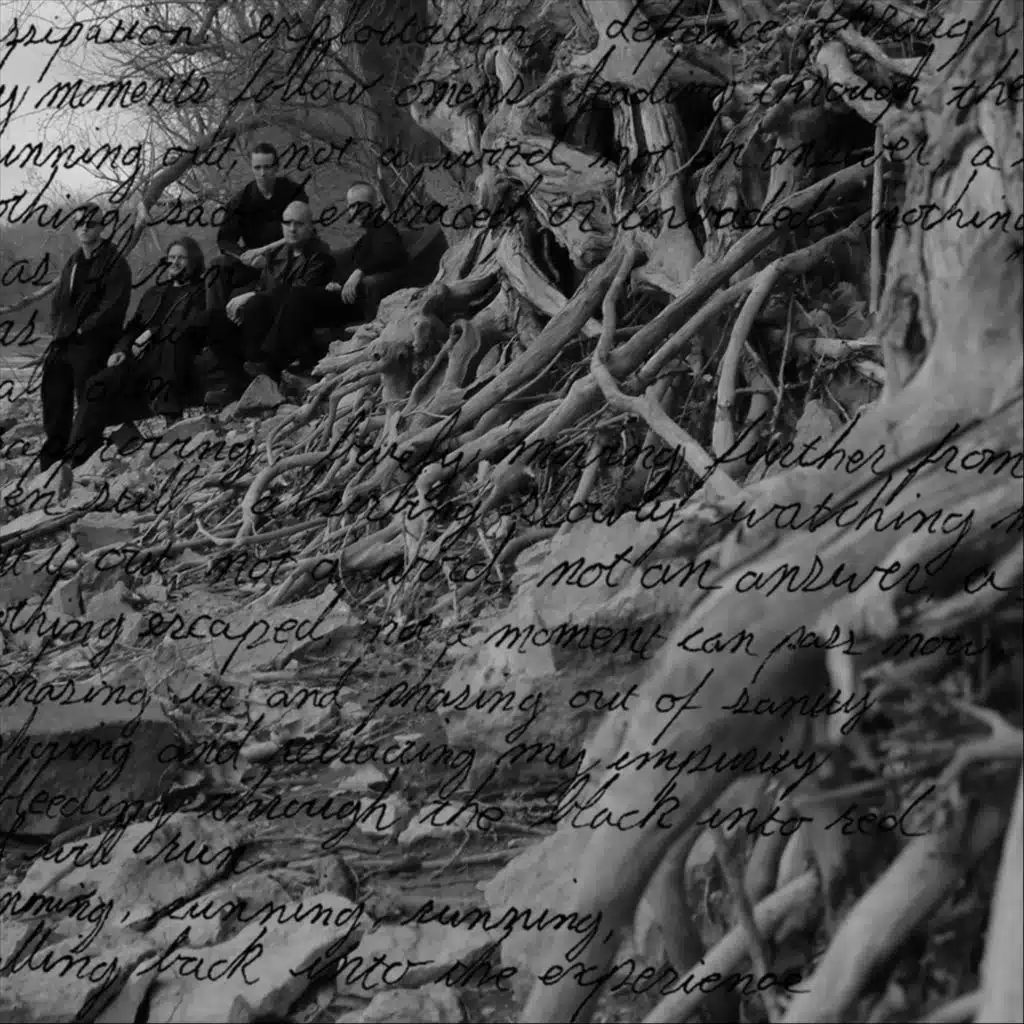 exploitation, defiance through
moments follow omens, leading through the
running out, not a word nor an answer, a
othing sacred embraced or invaded nothing
as I run
as
further from
still absorbing slowly watching
out, not a word, not an answer, a
thing escaped not a moment can pass now
phasing in and phasing out of sanity
and retracing my impurity
bleeding through the black into red
I will run
nning, running, running,
lling back into the experience